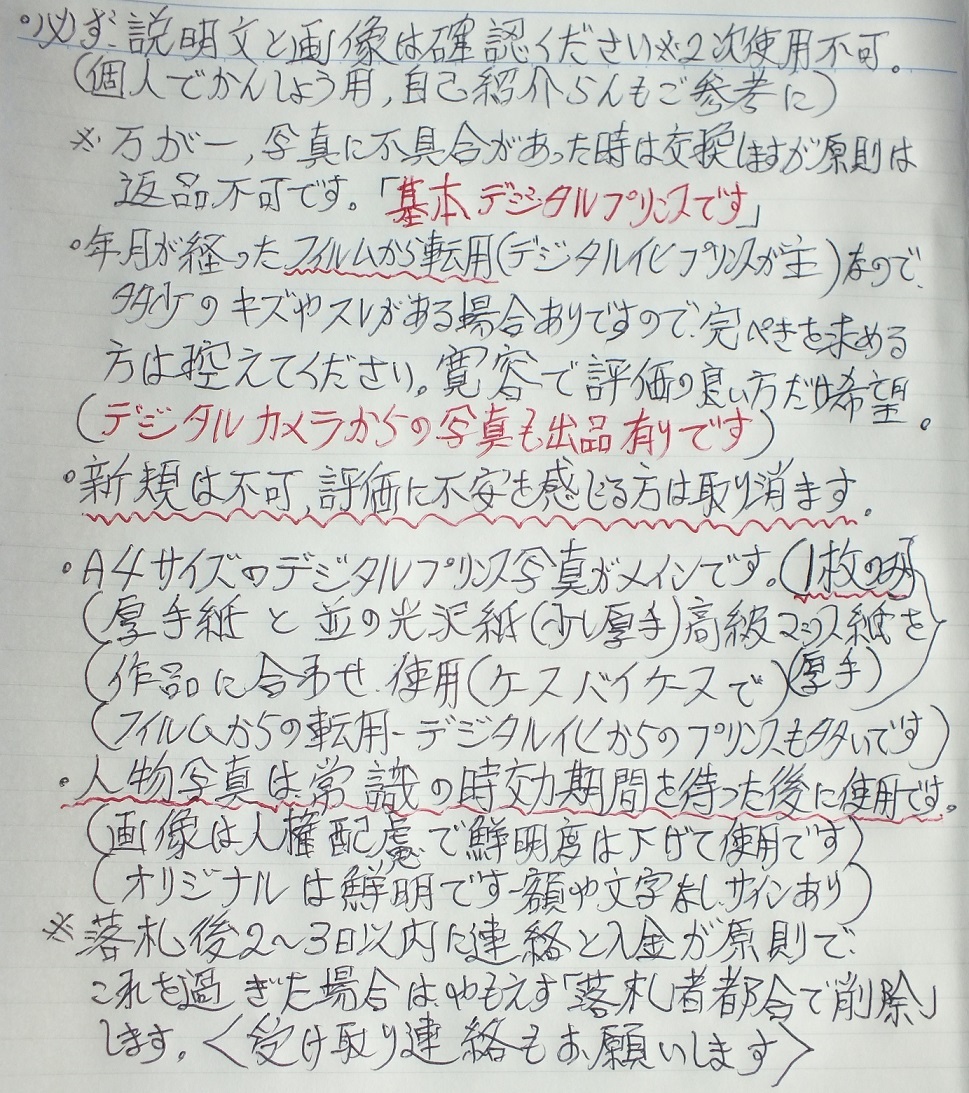 。必ず、説明文と画像は確認ください※2次使用不可。
(個人でかんしょう用,自己紹介らんもご参考に)
※万が一,写真に不具合があった時は交換しますが原則は
返品不可です。「基本デジタルプリンスです」
。年月が経ったフィルムから転用(デジタルイヒプリンスが主)なので、
多少のキズやスレがある場合ありですので、完ぺきを求める
方は控えてください。寛容で評価の良い方だけ希望。
(デジタルカメラからの写真も出品有りです)
。新規は不可,評価に不安を感じる方は取り消ます。
。A4サイズのデジタルプリンス写真がメインです。(1枚のみ)
(厚手紙と並の光沢紙(少し厚手)高級マット紙を
(作品に合わせ、使用(ケースバイケースで)(厚手)
(フィルムからの転用-デジタル化からのプリンスも多いです)
・人物写真は、常識の時効期間を待った後に使用です。
(画像は人権配慮で鮮明度は下げて使用です)
(オリジナルは鮮明です-額や文字なし、サインあり)
※落札後2〜3日以内に連絡と入金が原則で、
これを過ぎた場合は、やもえず「落札者都合で削除」
します。〈受け取り連絡もお願いします〉